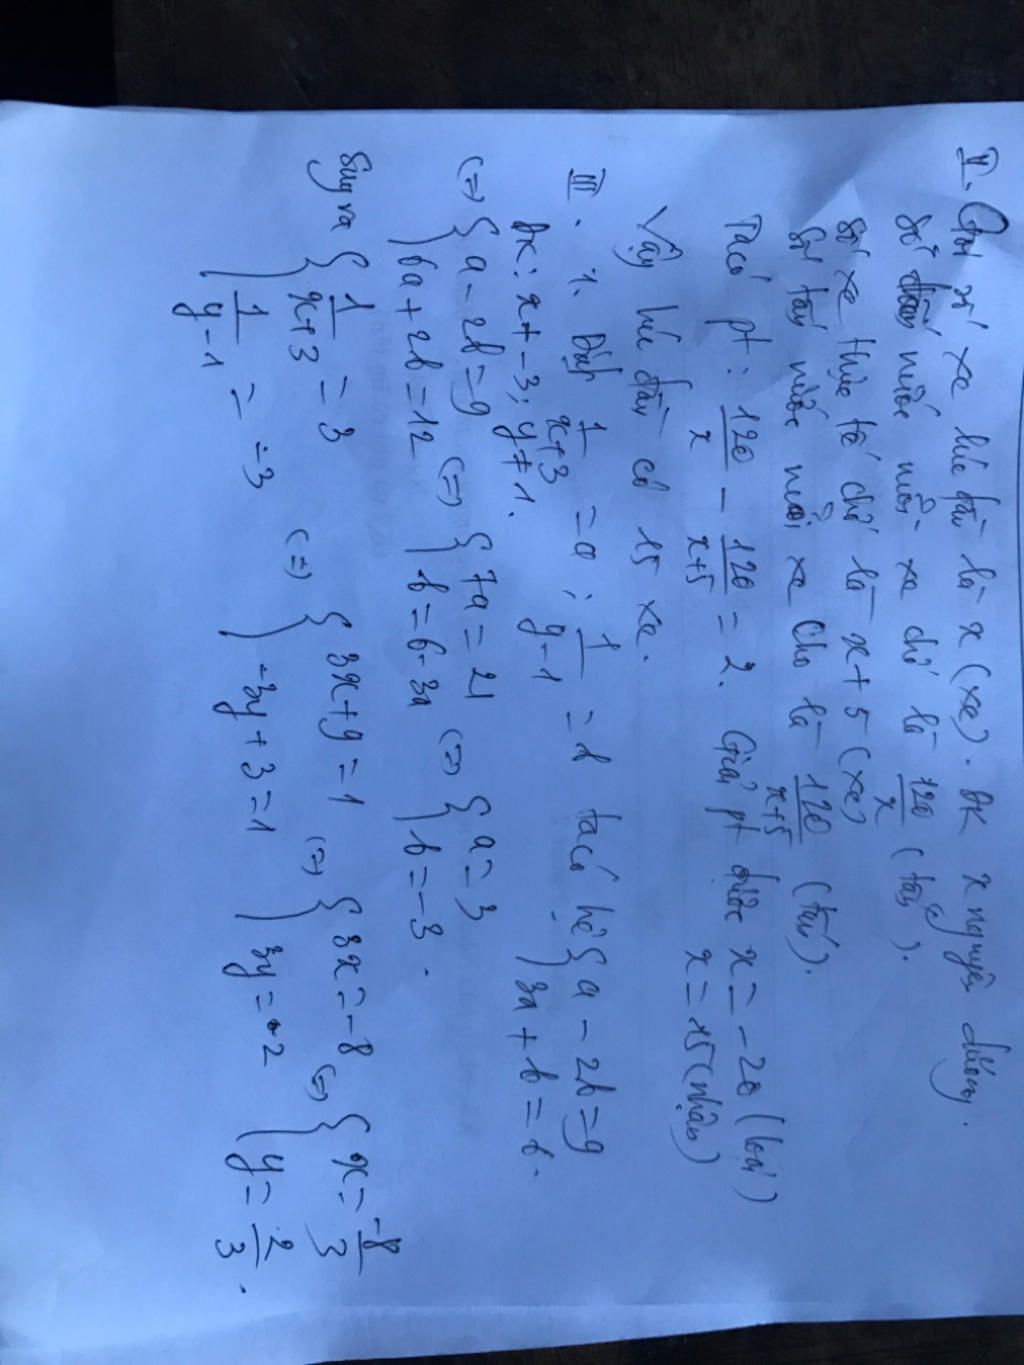 II. Gọi số xe lúc đầu là x (xe). ĐK x nguyên dương.
Số tấn mỗi xe chở là 120/x (tấn).
Số xe thực tế chở là x + 5 (xe)
Số tấn mỗi xe chở là 120/(x+5) (tấn).
Ta có pt : 120/x - 120/(x+5) = 2. Giải pt được x = -20 (loại)
x = 15 (nhận)
Vậy lúc đầu có 15 xe.
III. 1. Đặt 1/(x+3) = a ; 1/(y-1) = b ta có hệ { a - 2b = 9
3a + b = 6.
ĐK: x ≠ -3; y ≠ 1.
(=) { a - 2b = 9 (=) { 7a = 21 (=) { a = 3
6a + 2b = 12 b = 6 - 3a b = -3.
Suy ra { 1/(x+3) = 3 (=) { 3x + 9 = 1 (=) { 3x = -8 (=) { x = -8/3
1/(y-1) = -3 -3y + 3 = 1 3y = 2 y = 2/3.